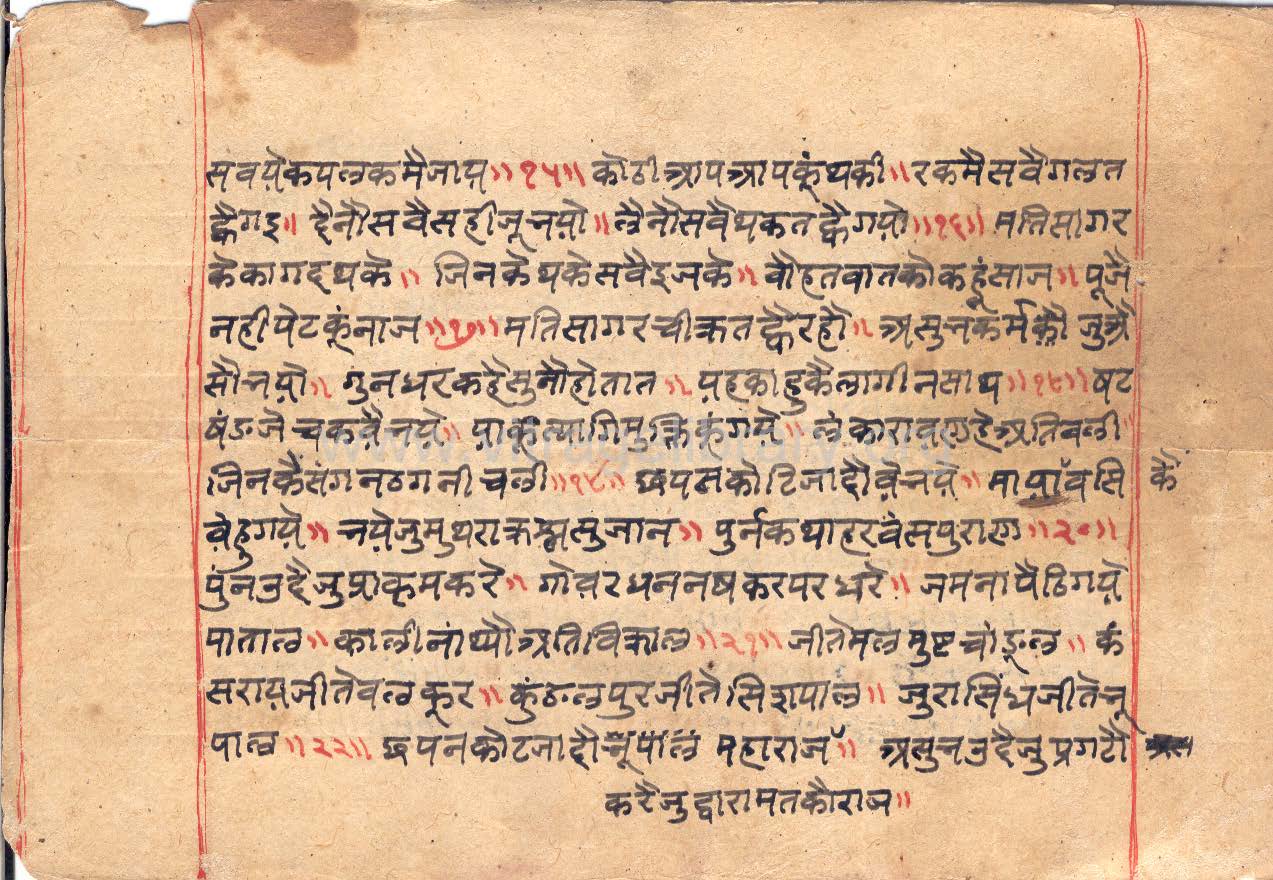 सवयेकपलकमैजाय ॥१५॥ कोठीआपआपकूंथकी॥ रकमैसवैगलत
ह्वैगइ॥ दैनौसवैसहीजूभयो॥ लैनौसवैथकतह्वैगयो॥१६॥ मतिसागर
केकागदथके॥ जिनकेथकेसवैइजके॥ वौहतवातकोकहूंसाज॥ पूजै
नहीपेटकूंनाज॥१७॥ मतिसागरचीक्रतह्वैरहौ॥ असुभकर्मकौजुअै
सौभयो॥ गुनधरकहैसुनौहोतात॥ यहकाहुकैलागीनसाथ॥१८॥ षट
षंडजेचकवैभये॥ याकूंत्यागिमुक्तिकूंगये॥ लंकारावणहेअतिवली
जिनकैसंगनठगनीचली॥१९॥ छपनकोटिजादौवेभये॥ मायावसि कैं
वेहुगये॥ भयेजुमुथराक्रस्नसुजान॥ पुर्नकथाहरवंसपुराण॥२०॥
पुंनउदैजुप्राकृमकरे॥ गोवरधननषकरपरधरे॥ जमनापैठिगये
पाताल॥ कालीनांथ्यौअतिविक्राल॥२१॥ जीतेमलमुष्टचांडूल॥ कं
सरायजीतेवलकूर॥ कुंडलपुरजीतेसिशपाल॥ जुरासिंधजीतेभू
पाल॥२२॥ छपनकोटजादौभूपाल महाराज॥ असुभउदैजुप्रगटौ
करैजुद्वारामतकौराज॥